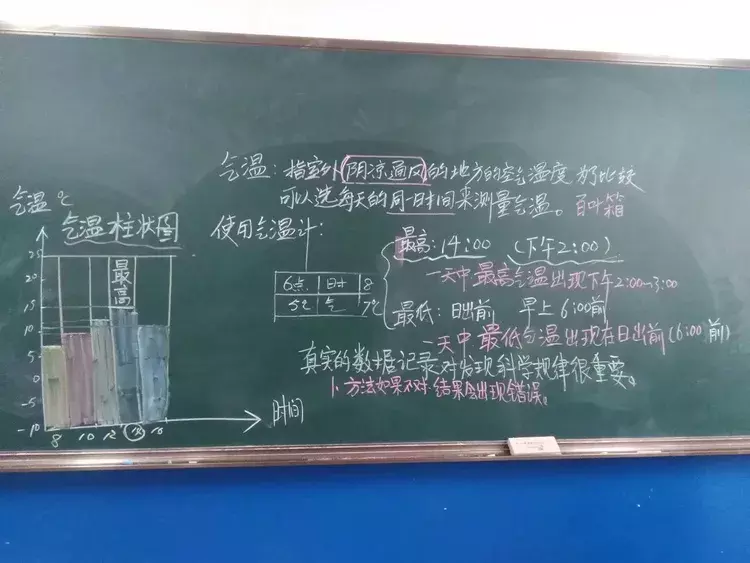 气温：指室外阴凉通风的地方的空气温度 为了比较
可以选每天的同一时间来测量气温。百叶箱
使用气温计：
6点 日寸 8
5℃ 气 7℃
最高：14:00 （下午2:00）
一天中最高气温出现下午2:00-3:00
最低：日出前 早上6:00前
一天中最低气温出现在日出前（6:00前）
真实的数据记录对发现科学规律很重要。
1. 方法如果不对 结果会出现错误。
气温 ℃
气温柱状图
最高
25
20
15
10
5
0
-5
-10
8 10 12 14 16
时间